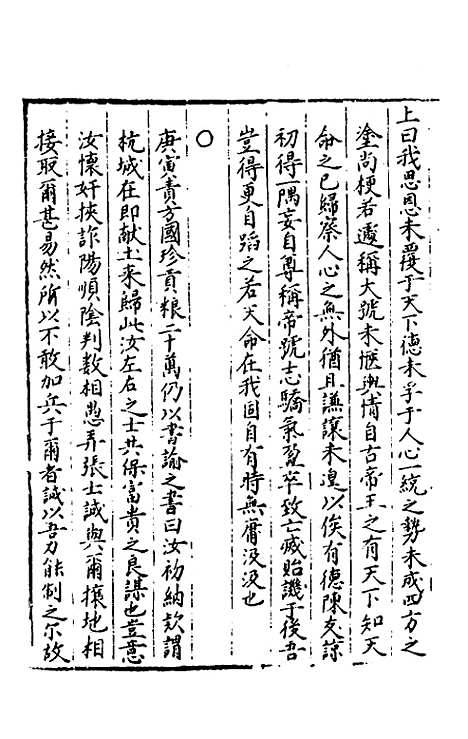 上曰我思恩未覆于天下德未孚于人心一統之勢未成四方之
塗尚梗若遽稱大號未愜輿情自古帝王之有天下知天
命之已歸察人心之無外猶且謙讓未遑以俟有德陳友諒
初得一隅妄自尊稱帝號志驕氣盈卒致亡滅貽譏于後吾
豈得更自蹈之若天命在我固自有時無庸汲汲也
○
庚寅責方國珍貢粮二十萬仍以書諭之書曰汝初納款謂
杭城在即献土来歸此汝左右之士共保富貴之良謀也豈意
汝懷奸挾詐陽順陰判數相愚弄張士誠與爾攘地相
接取爾甚易然所以不敢加兵于爾者誠以吾力能制之尔故